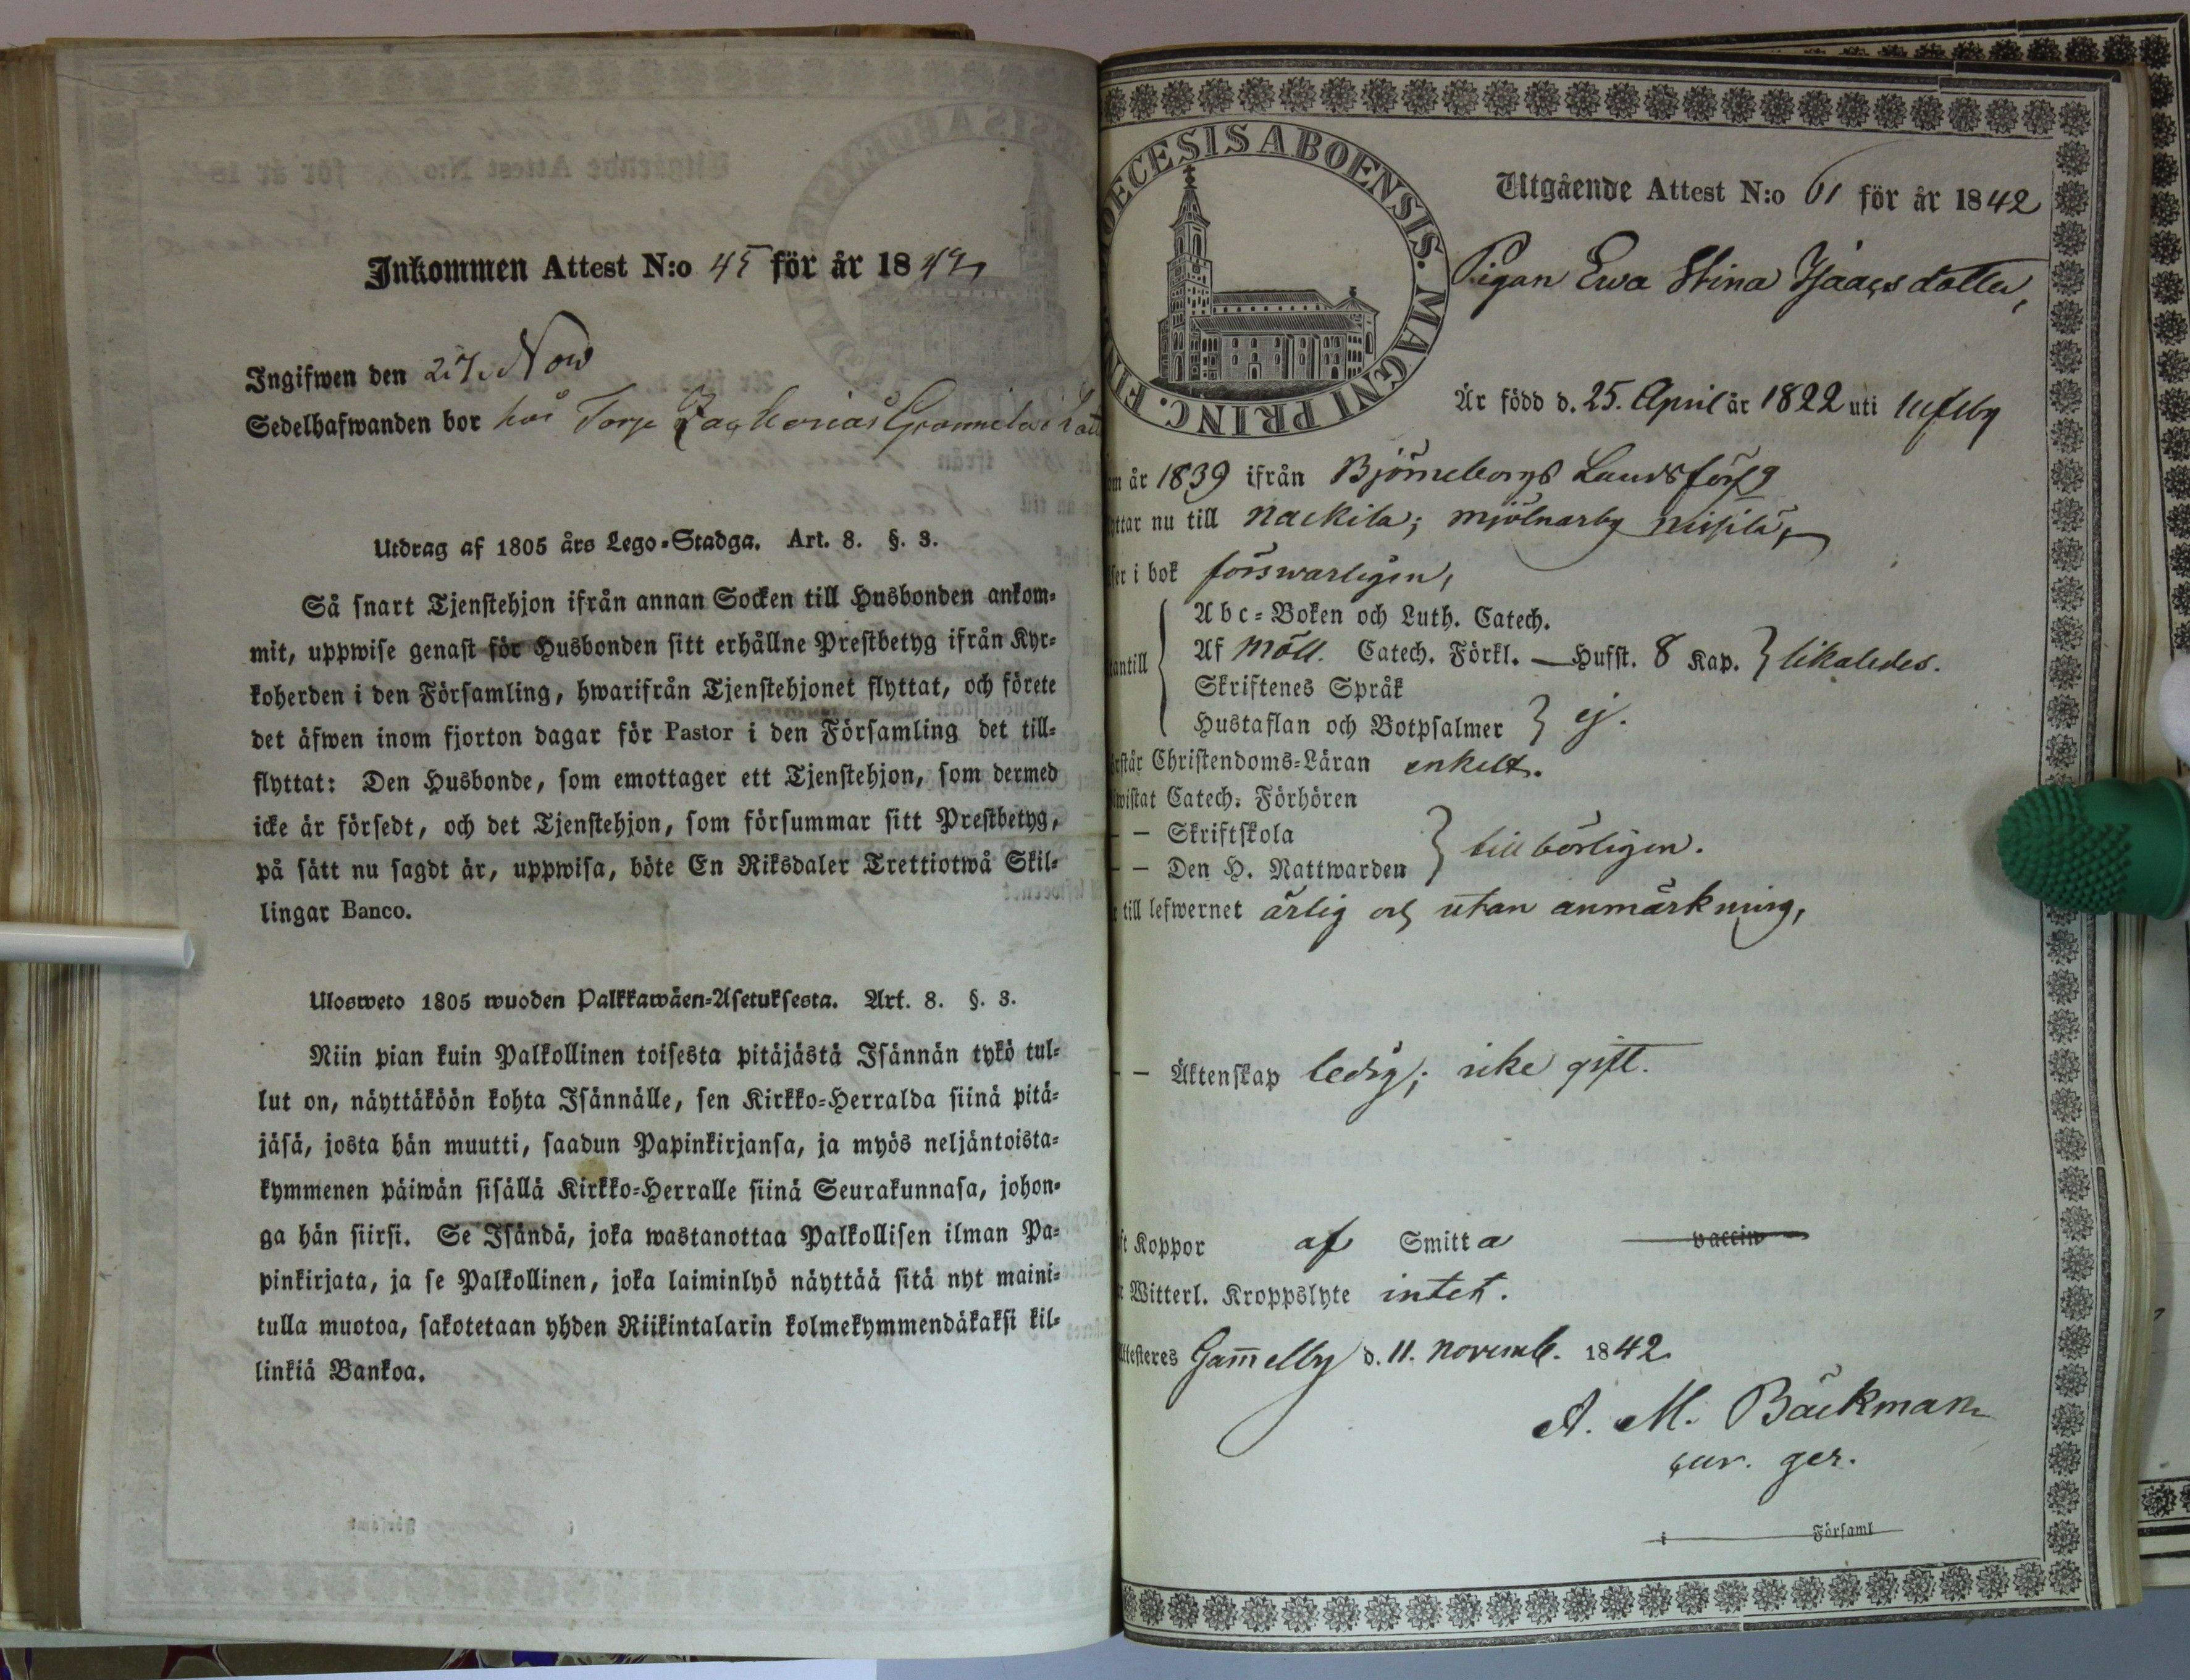 Inkommen Attest N:o 45 för år 1842
Ingifwen den 27. Now
Sedelhafwanden bor hos Torp Zacharias
Utdrag af 1805 års Lego-Stadga. Art. 8. §. 3.
Så snart Tjenstehjon ifrån annan Socken till Husbonden ankom-
mit, uppwise genast för Husbonden sitt erhållne Prestbetyg ifrån Kyr-
koherden i den Församling, hwarifrån Tjenstehjonet flyttat, och förete
det äfwen inom fjorton dagar för Pastor i den Församling det till-
flyttat: Den Husbonde, som emottager ett Tjenstehjon, som dermed
icke är försedt, och det Tjenstehjon, som försummar sitt Prestbetyg,
på sätt nu sagdt är, uppwisa, böte En Riksdaler Trettiotwå Skil-
lingar Banco.
Ulosweto 1805 wuoden Palkkawäen-Asetuksesta. Art. 8. §. 3.
Niin pian kuin Palkollinen toisesta pitäjästä Isännän tykö tul-
lut on, näyttäköön kohta Isännälle, sen Kirkko-Herralda siinä pitä-
jäsä, josta hän muutti, saadun Papinkirjansa, ja myös neljäntoista-
kymmenen päiwän sisällä Kirkko-Herralle siinä Seurakunnasa, johon-
ga hän siirsi. Se Isändä, joka wastanottaa Palkollisen ilman Pa-
pinkirjata, ja se Palkollinen, joka laiminlyö näyttää sitä nyt maini-
tulla muotoa, sakotetaan yhden Riikintalarin kolmekymmendäkaksi kil-
linkiä Bankoa.
OECESIS ABOENSIS. MAGNI PRINC. FIN
Utgående Attest N:o 61 för år 1842
Pigan Ewa Stina Isaacsdotter,
Är född d. 25. April år 1822 uti Ulfsby
om år 1839 ifrån Björneborgs Landsförsg
yttar nu till Nackila; Mjölnarby
äser i bok förswarligen,
Abc-Boken och Luth. Catech.
antill Af Möll. Catech. Förkl. — Husst. 8 Kap. } likaledes.
Skriftenes Språk
Hustaflan och Botpsalmer } ej.
rstår Christendoms-Läran enkelt.
wistat Catech. Förhören
— — Skriftskola
— — Den H. Nattwarden } tillbörligen.
till lefwernet ärlig och utan anmärkning,
— — Äktenskap ledig; icke gift.
ft Koppor af Smitta vaccin
Witterl. Kroppslyte intet.
ttesteres Gam̄elby d. 11. Novemb. 1842
A. M. Bäckman
cur. ger.
i Församl